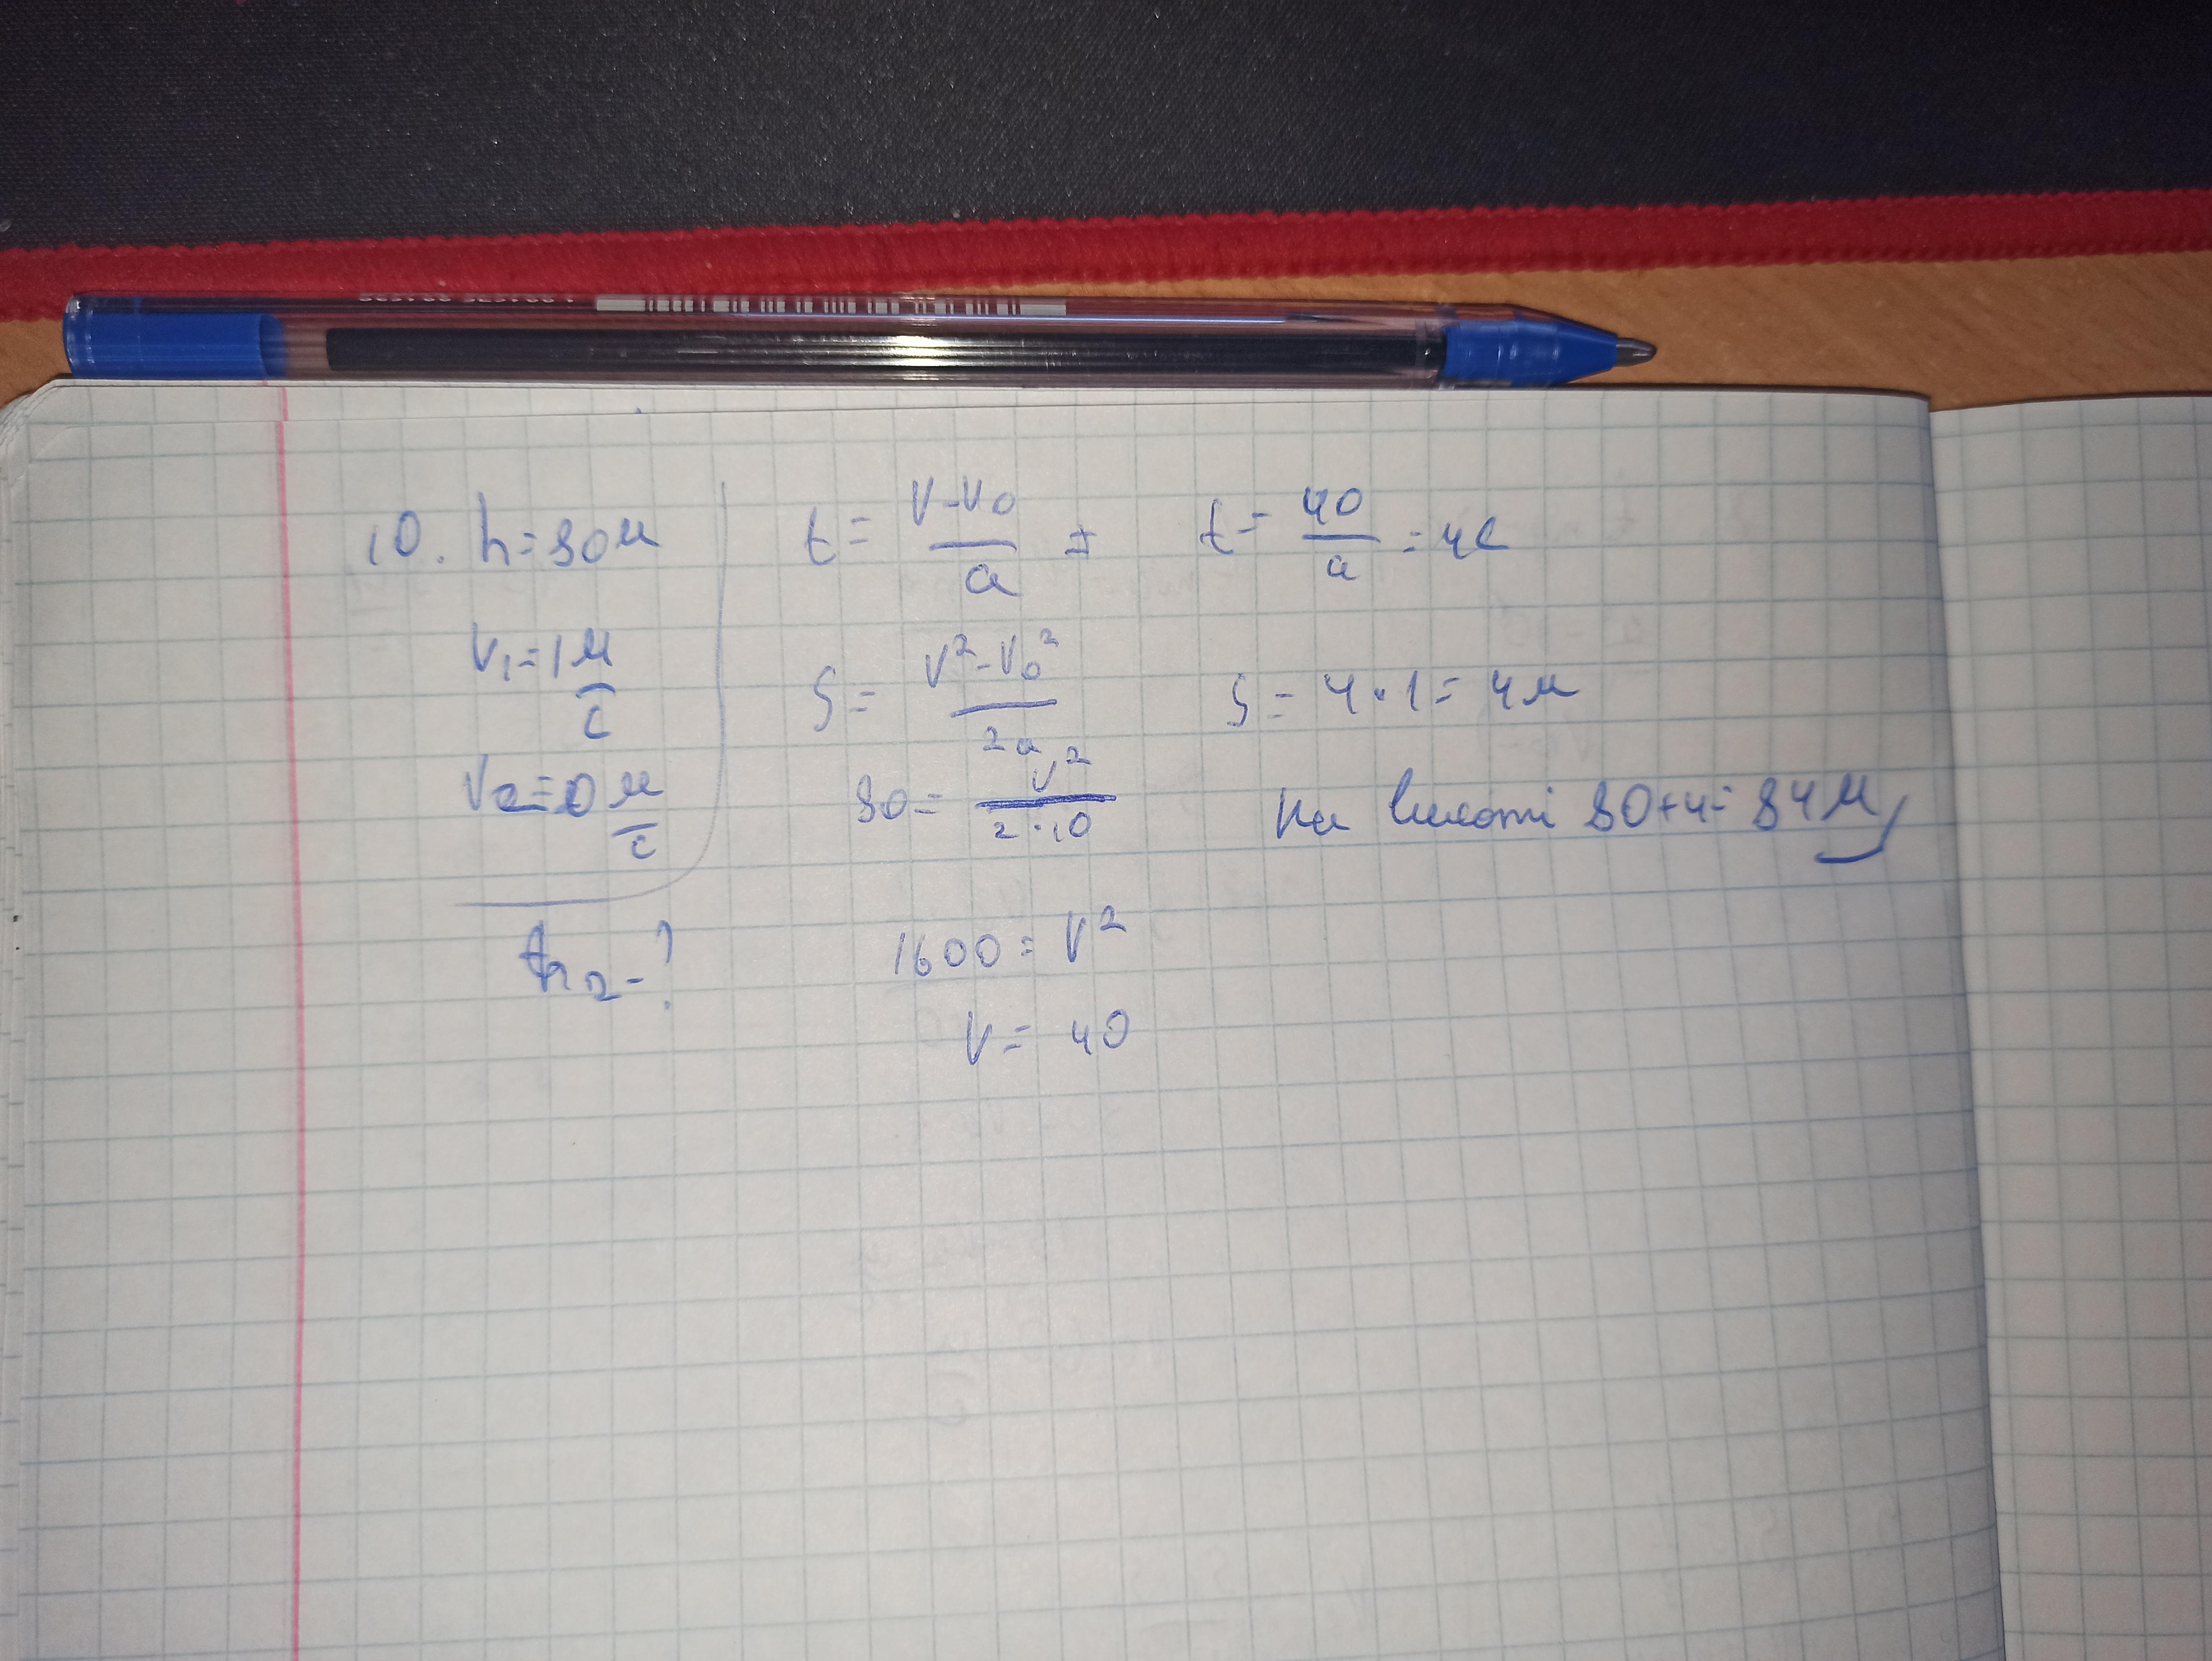 10. h=80м
V₁=1 м/с
V₀=0 м/с
h₂-?
t= (V-V₀)/a =
S= (V²-V₀²)/2a
80= V²/(2·10)
1600=V²
V= 40
t= 40/a =4с
S= 4·1= 4м
на висоті 80+4= 84м